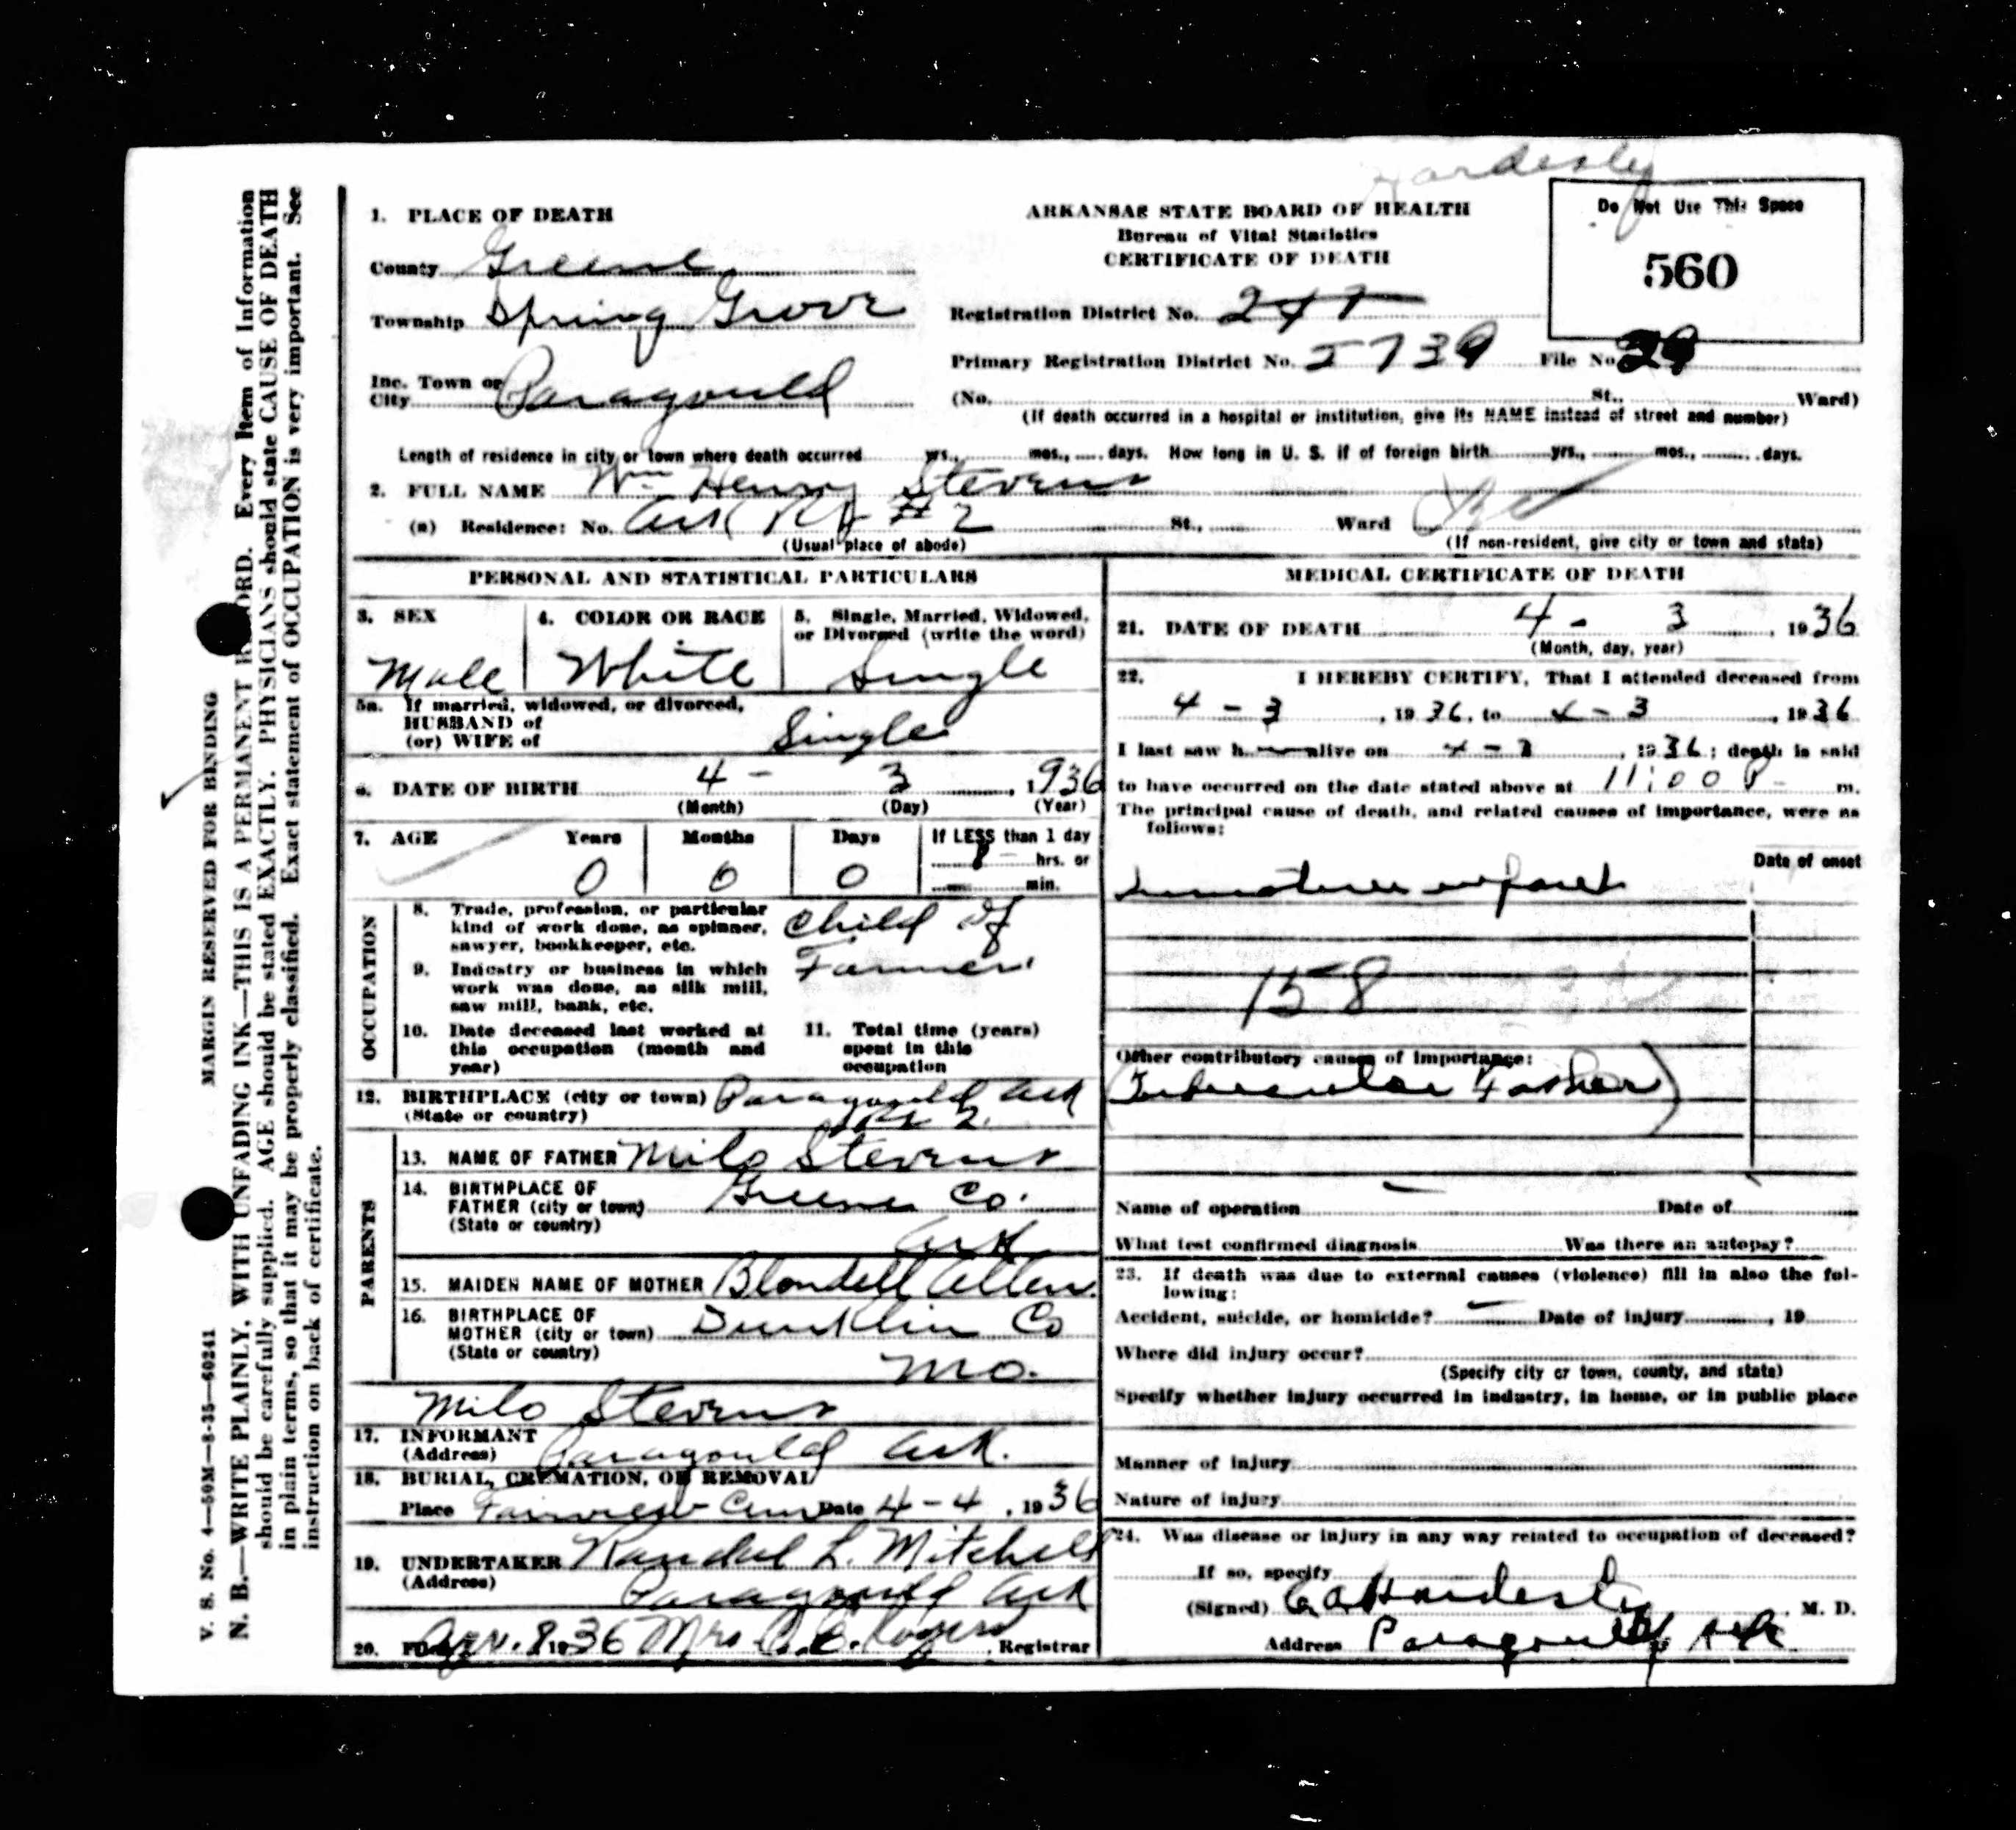 Hardesty
1. PLACE OF DEATH
County Greene
Township Spring Grove
Inc. Town or City Paragould
ARKANSAS STATE BOARD OF HEALTH
Bureau of Vital Statistics
CERTIFICATE OF DEATH
Registration District No. 247
Primary Registration District No. 5739 File No. 29
(No. St., Ward)
(If death occurred in a hospital or institution, give its NAME instead of street and number)
Do Not Use This Space
560
Length of residence in city or town where death occurred yrs., mos., days. How long in U. S. if of foreign birth yrs., mos., days.
2. FULL NAME Wm Henry Stevens
(a) Residence: No. Ark Rt #2 St., Ward
(Usual place of abode) (If non-resident, give city or town and state)
PERSONAL AND STATISTICAL PARTICULARS
3. SEX Male
4. COLOR OR RACE White
5. Single, Married, Widowed, or Divorced (write the word) Single
5a. If married, widowed, or divorced,
HUSBAND of
(or) WIFE of Single
6. DATE OF BIRTH 4 - 3, 1936
(Month) (Day) (Year)
7. AGE Years 0 Months 0 Days 0 If LESS than 1 day hrs. or min.
OCCUPATION
8. Trade, profession, or particular kind of work done, as spinner, sawyer, bookkeeper, etc. Child of
9. Industry or business in which work was done, as silk mill, saw mill, bank, etc. Farmer
10. Date deceased last worked at this occupation (month and year)
11. Total time (years) spent in this occupation
12. BIRTHPLACE (city or town) Paragould Ark
(State or country) Rt 2
PARENTS
13. NAME OF FATHER Milo Stevens
14. BIRTHPLACE OF FATHER (city or town) Greene Co.
(State or country) Ark
15. MAIDEN NAME OF MOTHER Blondell Allen
16. BIRTHPLACE OF MOTHER (city or town) Dunklin Co
(State or country) Mo.
Milo Stevens
17. INFORMANT
(Address) Paragould Ark.
18. BURIAL, CREMATION, OR REMOVAL
Place Fairview Cem Date 4-4, 1936
19. UNDERTAKER Randal L. Mitchell
(Address) Paragould Ark
20. Filed Apr. 8 1936 Mrs. Registrar
MEDICAL CERTIFICATE OF DEATH
21. DATE OF DEATH 4 - 3, 1936
(Month, day, year)
22. I HEREBY CERTIFY, That I attended deceased from
4 - 3, 1936, to 4 - 3, 1936
I last saw h alive on 4 - 3, 1936; death is said
to have occurred on the date stated above at 11:00 P m.
The principal cause of death, and related causes of importance, were as follows:
Date of onset
infant
158
Other contributory causes of importance:
(Tubercular Father)
Name of operation Date of
What test confirmed diagnosis Was there an autopsy?
23. If death was due to external causes (violence) fill in also the following:
Accident, suicide, or homicide? Date of injury, 19
Where did injury occur?
(Specify city or town, county, and state)
Specify whether injury occurred in industry, in home, or in public place
Manner of injury
Nature of injury
24. Was disease or injury in any way related to occupation of deceased?
If so, specify
(Signed) Hardesty, M. D.
Address Paragould Ark
MARGIN RESERVED FOR BINDING
V. S. No. 4—50M—8-35—60241
N. B.—WRITE PLAINLY, WITH UNFADING INK—THIS IS A PERMANENT RECORD. Every Item of Information
should be carefully supplied. AGE should be stated EXACTLY. PHYSICIANS should state CAUSE OF DEATH
in plain terms, so that it may be properly classified. Exact statement of OCCUPATION is very important. See
instruction on back of certificate.